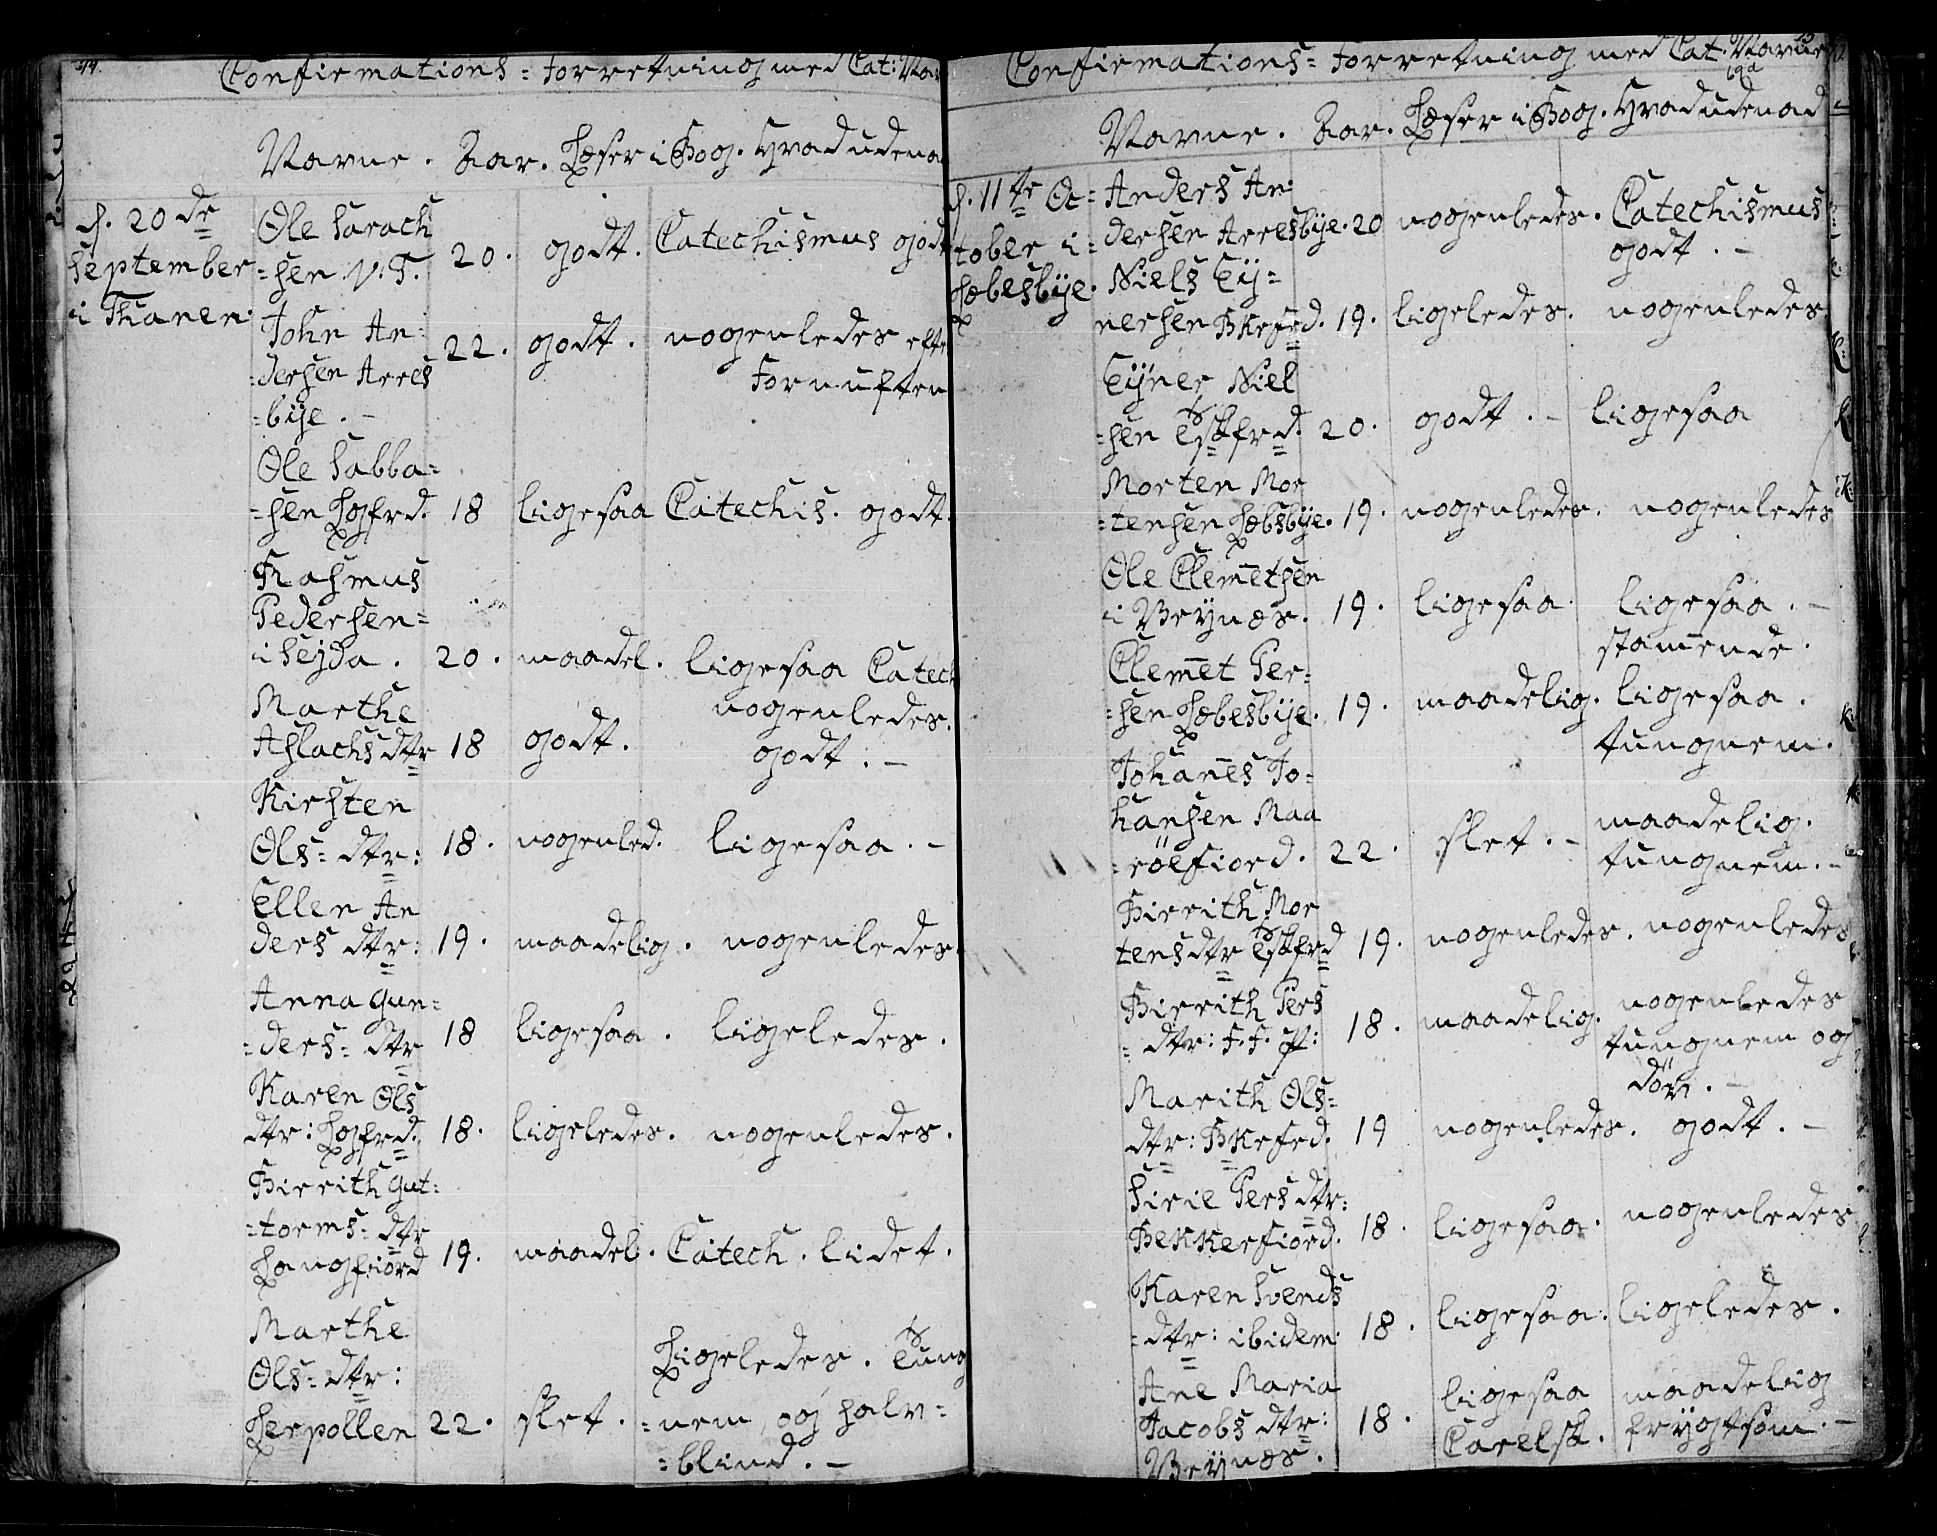 Confirmations-Forretning med Cat: Nav
Navne. Aar. Læser i Bog. Hvad udena
d. 20de
September
i Thanen.
Ole Sarach
=sen V.T. 20. godt. Catechismus godt
John An:
=dersen Arres
=bye. - 22. godt. nogenledes efter
Fornuften
Ole Sabba=
=sen Lgfrd. 18 ligesaa Catechis. godt.
Rasmus
Pedersen=
i Seyda. 20. maadel. ligesaa Catech
nogenledes.
Marthe
Aslachs dtr 18 godt. godt. -
Kirsten
Ols= dtr: 18. nogenled. ligesaa. -
Ellen An
ders dtr: 19. maadelig. nogenledes.
Anna Gun=
=ders= dtr 18 ligesaa. ligeledes.
Karen Ols
dtr: Lgfrd. 18. ligeledes. nogenledes.
Birrith Gut=
=torms= dtr
Langfiord 19. maadel. Catech. lidet.
Marthe
Ols= dtr:
Lerpollen 22. slet. Ligeledes. Tung
=nem, og halv=
=blind. -
Confirmations-Forretning med Cat. Navne
Navne. Aar. Læser i Bog. Hvad udenad
d. 11te Oc=
tober i=
Læbesbye.
Anders An:
dersen Arresbye. 20 nogenledes. Catechismus
godt. -
Niels Ey=
nersen BKefrd. 19. ligeledes. nogenledes
Eyner Niel
=sen Eskfrd. 20. godt. - ligesaa
Morten Mor
=tensen Læbsbye. 19. nogenledes. nogenledes
Ole Clemetsen
i Veynæs. 19. ligesaa. ligesaa. -
stamende.
Clemet Per=
=sen Læbesbye. 19. maadelig. ligesaa.
tungnem.
Johanes Jo=
hansen Maa
=rölfiord. 22. slet. - maadelig.
tungnem. -
Birrith Mor
tens dtr Eskfrd 19. nogenledes. nogenledes
Birrith Pers
= dtr: F.F. 18. maadelig. nogenledes
tungnem og
döv. -
Marith Ols=
dtr: BKefrd. 19 nogenledes. godt. -
Sirie Pers dtr:
BeKKerfiord. 18. ligesaa. nogenledes
Karen Svends
=dtr: ibidem. 18. ligesaa. ligeledes.
Ane Maria
Jacobs dtr:
Veynæs. 18. ligesaa
Carelsk. maadelig
frygtsom. -